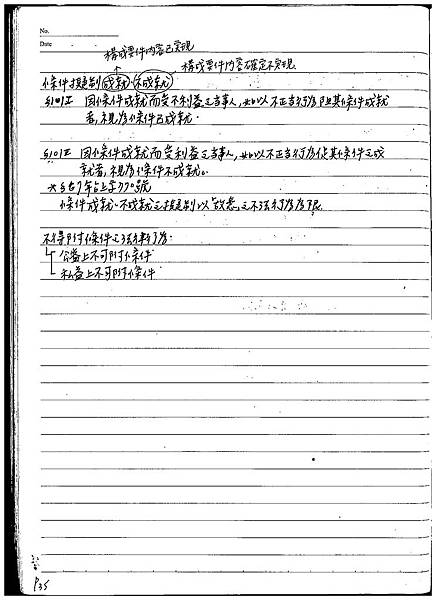 No.
Date
構成要件內容已實現
構成要件內容確定不實現
條件擬制 成就 不成就
§101I 因條件成就而受不利益之當事人,如以不正當行為阻其條件成就
者,視為條件已成就.
§101II 因條件成就而受利益之當事人,如以不正當行為促其條件之成
就者,視為條件不成就。
條件成就、不成就之擬制以"故意"之不法行為為限.
不得附條件之法律行為:
公益上不可附條件
私益上不可附條件
P35